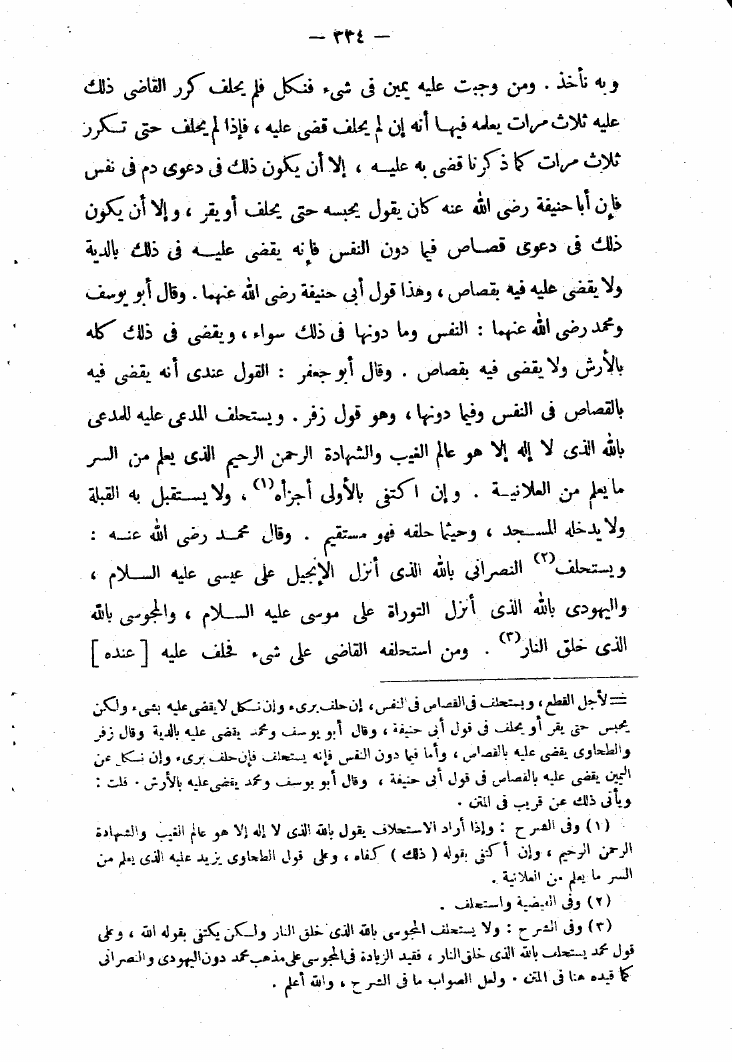 — ٣٣٤ —
وبه نأخذ . ومن وجبت عليه يمين فى شىء فنكل فلم يحلف كرر القاضى ذلك
عليه ثلاث مرات يعلمه فيها أنه إن لم يحلف قضى عليه ، فإذا لم يحلف حتى تكرر
ثلاث مرات كما ذكرنا قضى به عليه ، إلا أن يكون ذلك فى دعوى دم فى نفس
فإن أبا حنيفة رضى الله عنه كان يقول يحبسه حتى يحلف أو يقر ، وإلا أن يكون
ذلك فى دعوى قصاص فيما دون النفس فإنه يقضى عليه فى ذلك بالدية
ولا يقضى عليه فيه بقصاص ، وهذا قول أبى حنيفة رضى الله عنهما . وقال أبو يوسف
ومحمد رضى الله عنهما : النفس وما دونها فى ذلك سواء ، ويقضى فى ذلك كله
بالأرش ولا يقضى فيه بقصاص . وقال أبو جعفر : القول عندى أنه يقضى فيه
بالقصاص فى النفس وفيما دونها ، وهو قول زفر . ويستحلف المدعى عليه للمدعى
بالله الذى لا إله إلا هو عالم الغيب والشهادة الرحمن الرحيم الذى يعلم من السر
ما يعلم من العلانية . وإن اكتفى بالأولى أجزأه (١) ، ولا يستقبل به القبلة
ولا يدخله المسجد ، وحيثما حلفه فهو مستقيم . وقال محمد رضى الله عنه :
ويستحلف (٢) النصرانى بالله الذى أنزل الإنجيل على عيسى عليه السلام ،
واليهودى بالله الذى أنزل التوراة على موسى عليه السلام ، والمجوسى بالله
الذى خلق النار (٣) . ومن استحلفه القاضى على شىء فحلف عليه [ عنده ]
= لأجل القطع ، ويستحلف فى القصاص فى النفس ، إن حلف برىء وإن نكل لا يقضى عليه بشىء ولكن
يحبس حتى يقر أو يحلف فى قول أبى حنيفة ، وقال أبو يوسف ومحمد يقضى عليه بالدية وقال زفر
والطحاوى يقضى عليه بالقصاص ، وأما فيما دون النفس فإنه يستحلف فإن حلف برىء وإن نكل عن
اليمين يقضى عليه بالقصاص فى قول أبى حنيفة ، وقال أبو يوسف ومحمد يقضى عليه بالأرش . قلت :
ويأتى ذلك عن قريب فى المتن .
(١) وفى الشرح : وإذا أراد الاستحلاف يقول بالله الذى لا إله إلا هو عالم الغيب والشهادة
الرحمن الرحيم ، وإن أكتفى بقوله ( ذلك ) كفاه ، وعلى قول الطحاوى يزيد عليه الذى يعلم من
السر ما يعلم من العلانية .
(٢) وفى الفيضية واستحلف .
(٣) وفى الشرح : ولا يستحلف المجوسى بالله الذى خلق النار ولكن يكتفى بقوله الله ، وعلى
قول محمد يستحلف بالله الذى خلق النار ، فقيد الزيادة فى المجوسى على مذهب محمد دون اليهودى والنصرانى
كما قيده هنا فى المتن . ولعل الصواب ما فى الشرح ، والله أعلم .